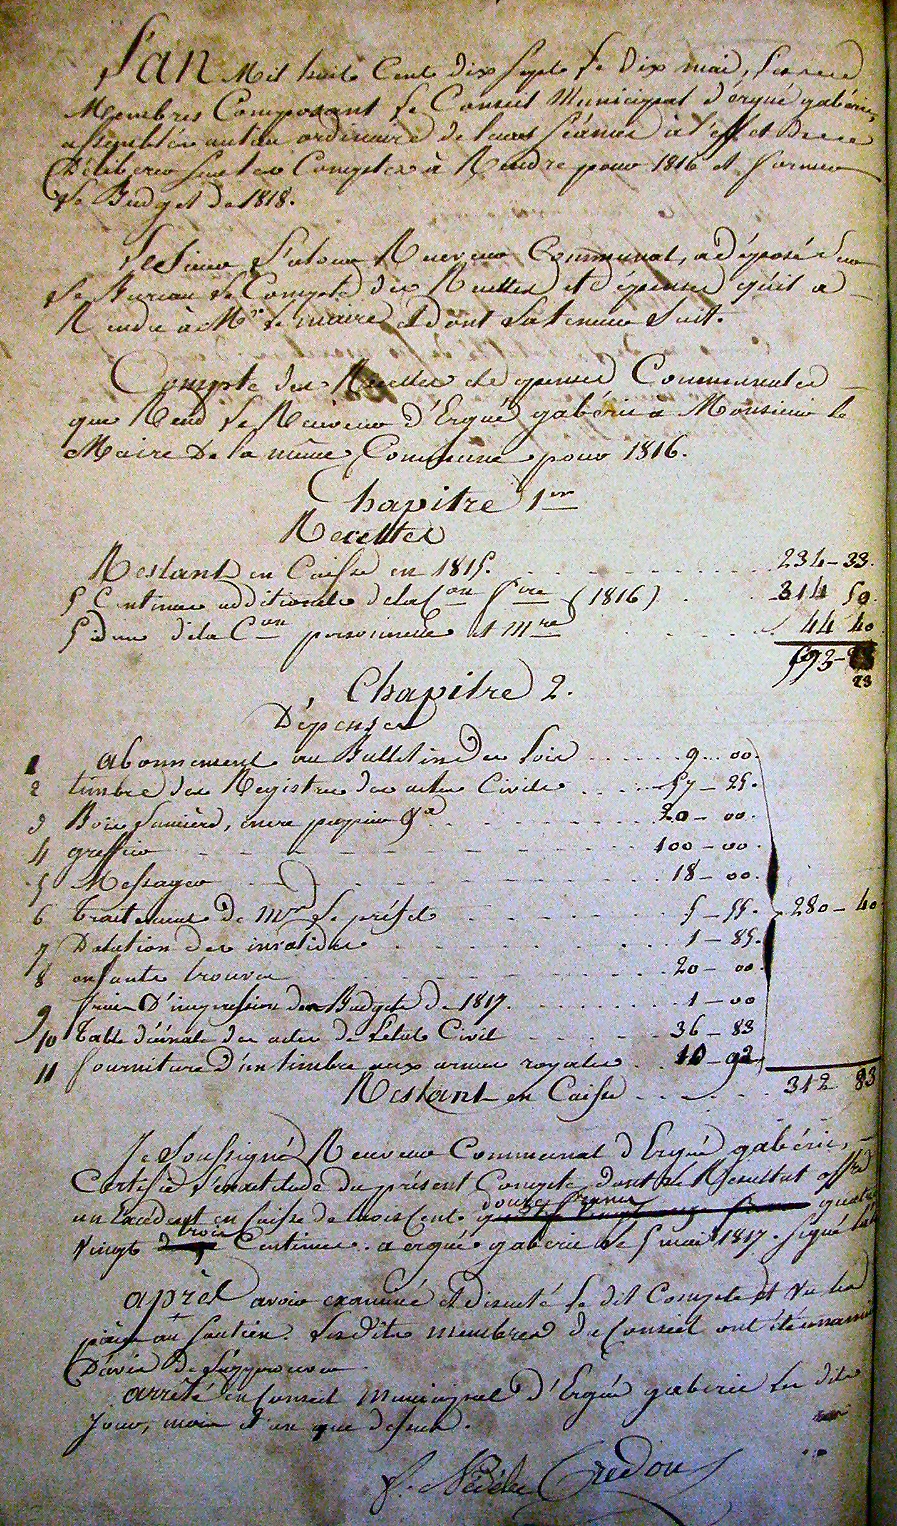 L'an Mil huit Cent dix Sept Le Dix mai, Les
Membres Composant Le Conseil Municipal d'ergué gabéric,
assemblés au lieu ordinaire de leurs Séances à l'effet De
Déliberer Sur les Comptes à Rendre pour 1816 et former
Le Budget de 1818.
Le Sieur Receveur Communal, a Déposé Sur
Le Bureau Le Compte des Recettes et dépenses qu'il a
Rendu à Mr Le maire et dont La teneur Suit.
Compte des Recettes et depenses Communales
que Rend Le Receveur d'Ergué gabéric a Monsieur le
Maire De la même Commune pour 1816.
Chapitre 1er
Recettes
Restant en Caisse en 1815. 234-33.
5 Centimes additionels de la Con fre (1816) 314 50.
5 idem de la Con personnelle et mre 44 40
593-23
23
Chapitre 2.
Dépenses
1 abonnement au Bulletin Des Lois 9..00.
2 timbre des Registres des actes Civils 57-25.
3 Bois Lumière, encre papier &a 20-00.
4 greffier 100-00.
5 Messager 18-00.
6 traitement De Mr Le préfet 5-55. 280-40
7 Dotation des invalides 1-85.
8 enfants trouvés 20-00.
9 frais D'impression des Budgets de 1817 1-00
10 Table décénale des actes de L'état Civil 36-83
11 fourniture d'un timbre aux armes royales 10-92
Restant en Caisse 312 83
Je Soussigné Receveur Communal d'Ergué gabéric,
Certifie L'exactitude du présent Compte, dont Le Résultat offre
un Excédent en Caisse de trois Cent douze francs quatre
Vingt trois Centimes. a ergué gaberic le 5 mai 1817. Signé
après avoir examiné et discuté Le dit Compte et Vu Les
pièces au Soutien. Lesdits membres du Conseil ont été unanimement
D'avis De L'approuver
arrêté en Conseil Municipal d'Ergué gaberic Les dits
jour, mois et an que dessus.
Nédélec Credou